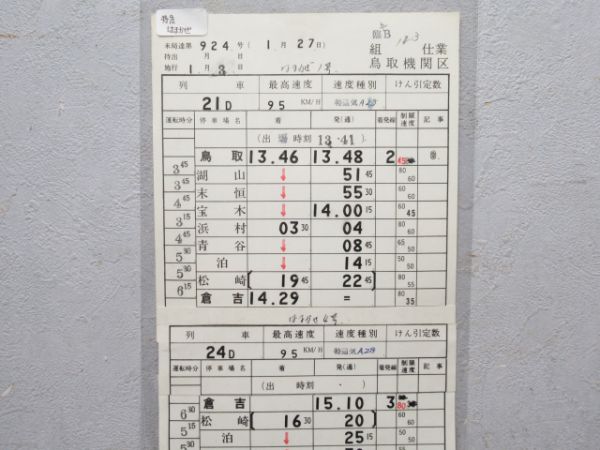 特急
はまかぜ
臨B
米局達第 924 号 ( 1 月 27 日)
組 仕業
施行 1 月 3 日
はまかぜ1号
鳥取機関区
列 車 最高速度 速度種別 けん引定数
21D 95 KM/H
運転時分 停車場名 着 発(通) 着発線 制限速度 記事
(出場時刻 13.41)
鳥取 13.46 13.48 2 45
3 45 湖山 ↓ 51 45 80 60
3 45 末恒 ↓ 55 30 80 60
4 45 宝木 ↓ 14.00 15 60 45
3 15 浜村 03 30 04 80 60
4 45 青谷 ↓ 08 45 65 50
5 30 泊 ↓ 14 15 50 50
5 30 松崎 [ 19 45 22 45 ] 80 55
6 15 倉吉 14.29 = 80 35
はまかぜ4号
列 車 最高速度 速度種別 けん引定数
24D 95 KM/H
運転時分 停車場名 着 発(通) 着発線 制限速度 記事
(出 時刻 ・ )
倉吉 15.10 3 80
6 30 松崎 [ 16 30 20 ] 60 60
5 15 泊 ↓ 25 15 50 50